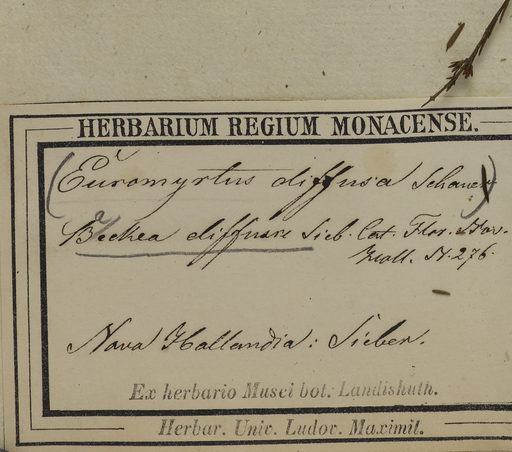 HERBARIUM REGIUM MONACENSE.
(Euromyrtus diffusa Schauer)
Beckea diffusa Sieb. Cat. Flor. Nov.
Holl. N. 276.
Nova Hollandia: Sieber.
Ex herbario Musei bot. Landishuth.
Herbar. Univ. Ludov. Maximil.